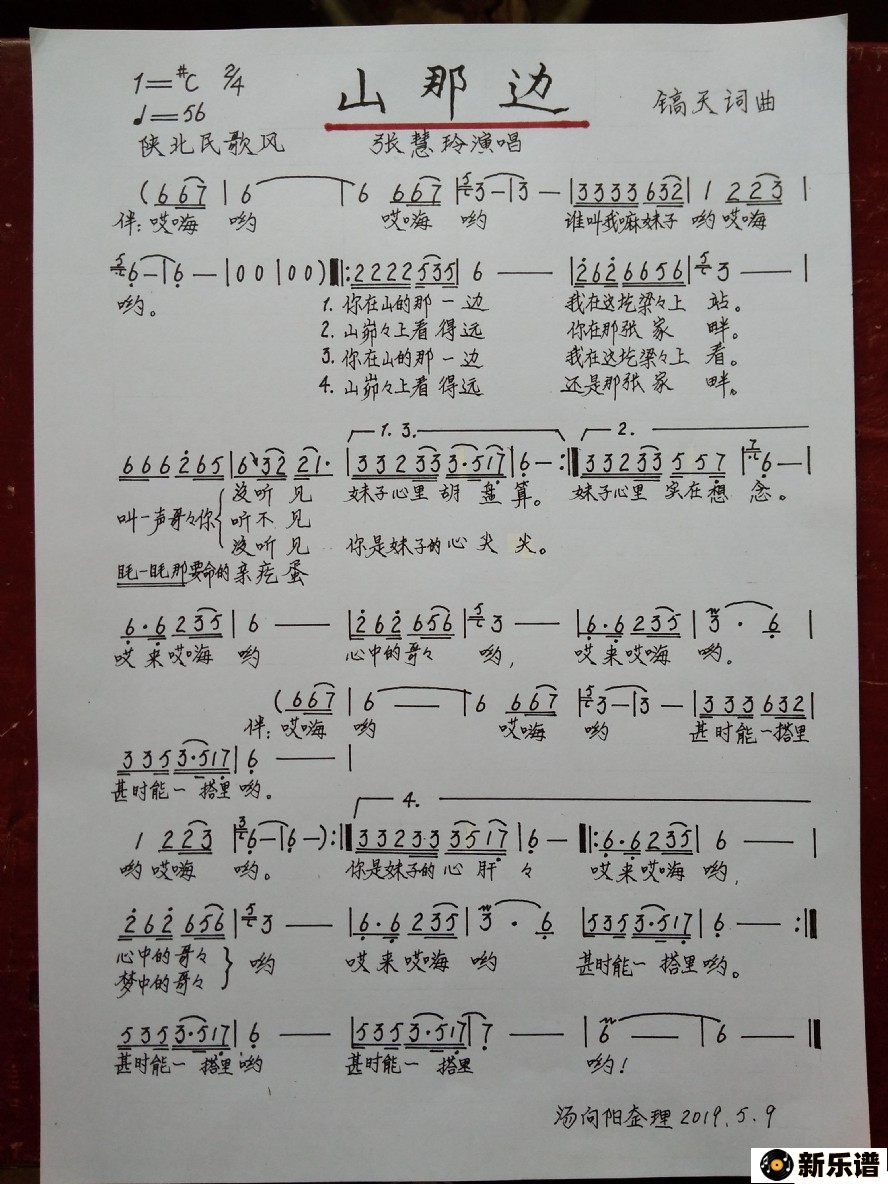 1=#C 2/4
山那边
镐天词曲
♩=56
陕北民歌风
张慧玲演唱
(6 6 7 | 6 | 6 6 6 7 | 3 - | 3 - | 3 3 3 3 6 3 2 | 1 2 2 3 |
伴:哎嗨 哟 哎嗨 哟 谁叫我嘛妹子 哟 哎嗨
6 - | 6 - | 0 0 | 0 0 ) |: 2 2 2 2 5 3 5 | 6 - | 2 6 2 6 6 5 6 | 3 - |
哟。
1. 你在山的那一边 我在这圪梁々上 站。
2. 山峁々上看得远 你在那张家 畔。
3. 你在山的那一边 我在这圪梁々上 看。
4. 山峁々上看得远 还是那张家 畔。
1. 3.
2.
6 6 6 2 6 5 | 6 3 2 2 1· | 3 3 2 3 3 3·5 1 7 | 6 - :| 3 3 2 3 3 5 5 7 | 6 - |
没听见 妹子心里 胡盘算。 妹子心里 实在想念。
叫一声哥々你 听不见
没听见 你是妹子的心尖尖。
眊一眊那要命的亲疙蛋
6·6 2 3 5 | 6 - | 2 6 2 6 5 6 | 3 - | 6·6 2 3 5 | 3 · 6 |
哎来哎嗨 哟 心中的哥々 哟, 哎来哎嗨 哟。
(6 6 7 | 6 - | 6 6 6 7 | 3 - | 3 - | 3 3 3 6 3 2 |
伴:哎嗨 哟 哎嗨 哟 甚时能一搭里
3 3 5 3·5 1 7 | 6 - |
甚时能一 搭里哟。
4.
1 2 2 3 | 6 - | 6 - ) :| 3 3 2 3·3 3 5 1 7 | 6 - |: 6·6 2 3 5 | 6 - |
哟 哎嗨 哟。 你是妹子的心肝々 哎来哎嗨 哟,
2 6 2 6 5 6 | 3 - | 6·6 2 3 5 | 3 · 6 | 5 3 5 3·5 1 7 | 6 - :|
心中的哥々 哟 哎来哎嗨 哟 甚时能一 搭里哟。
梦中的哥々
5 3 5 3·5 1 7 | 6 - | 5 3 5 3·5 1 7 | 7 - | 6 - | 6 - ‖
甚时能一 搭里哟 甚时能一 搭里 哟!
汤向阳整理2019.5.9
新乐谱